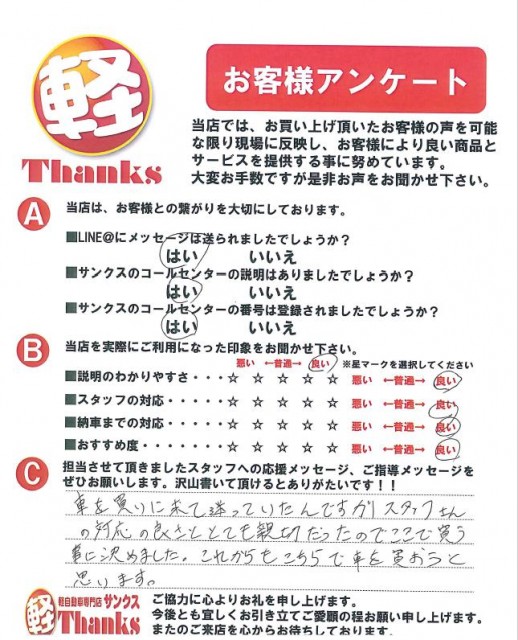 軽
Thanks
お客様アンケート
当店では、お買い上げ頂いたお客様の声を可能
な限り現場に反映し、お客様により良い商品と
サービスを提供する事に努めています。
大変お手数ですが是非お声をお聞かせ下さい。
A 当店は、お客様との繋がりを大切にしております。
■LINE@にメッセージは送られましたでしょうか？
はい いいえ
■サンクスのコールセンターの説明はありましたでしょうか？
はい いいえ
■サンクスのコールセンターの番号は登録されましたでしょうか？
はい いいえ
B 当店を実際にご利用になった印象をお聞かせ下さい。
悪い ←普通→ 良い ※星マークを選択してください
■説明のわかりやすさ・・・☆ ☆ ☆ ☆ ☆ 悪い ←普通→ 良い
■スタッフの対応・・・・・☆ ☆ ☆ ☆ ☆ 悪い ←普通→ 良い
■納車までの対応・・・・・☆ ☆ ☆ ☆ ☆ 悪い ←普通→ 良い
■おすすめ度・・・・・・・☆ ☆ ☆ ☆ ☆ 悪い ←普通→ 良い
C 担当させて頂きましたスタッフへの応援メッセージ、ご指導メッセージを
ぜひお願いします。沢山書いて頂けるとありがたいです！！
車を買いに来て迷っていたんですがスタッフさん
の対応の良さととても親切だったのでここで買う
事に決めました。これからもこちらで車を買おうと
思います。
軽 軽自動車専門店 サンクス
Thanks
ご協力に心よりお礼を申し上げます。
今後とも宜しくお引き立てご愛顧の程お願い申し上げます。
またのご来店を心からお待ちしております。